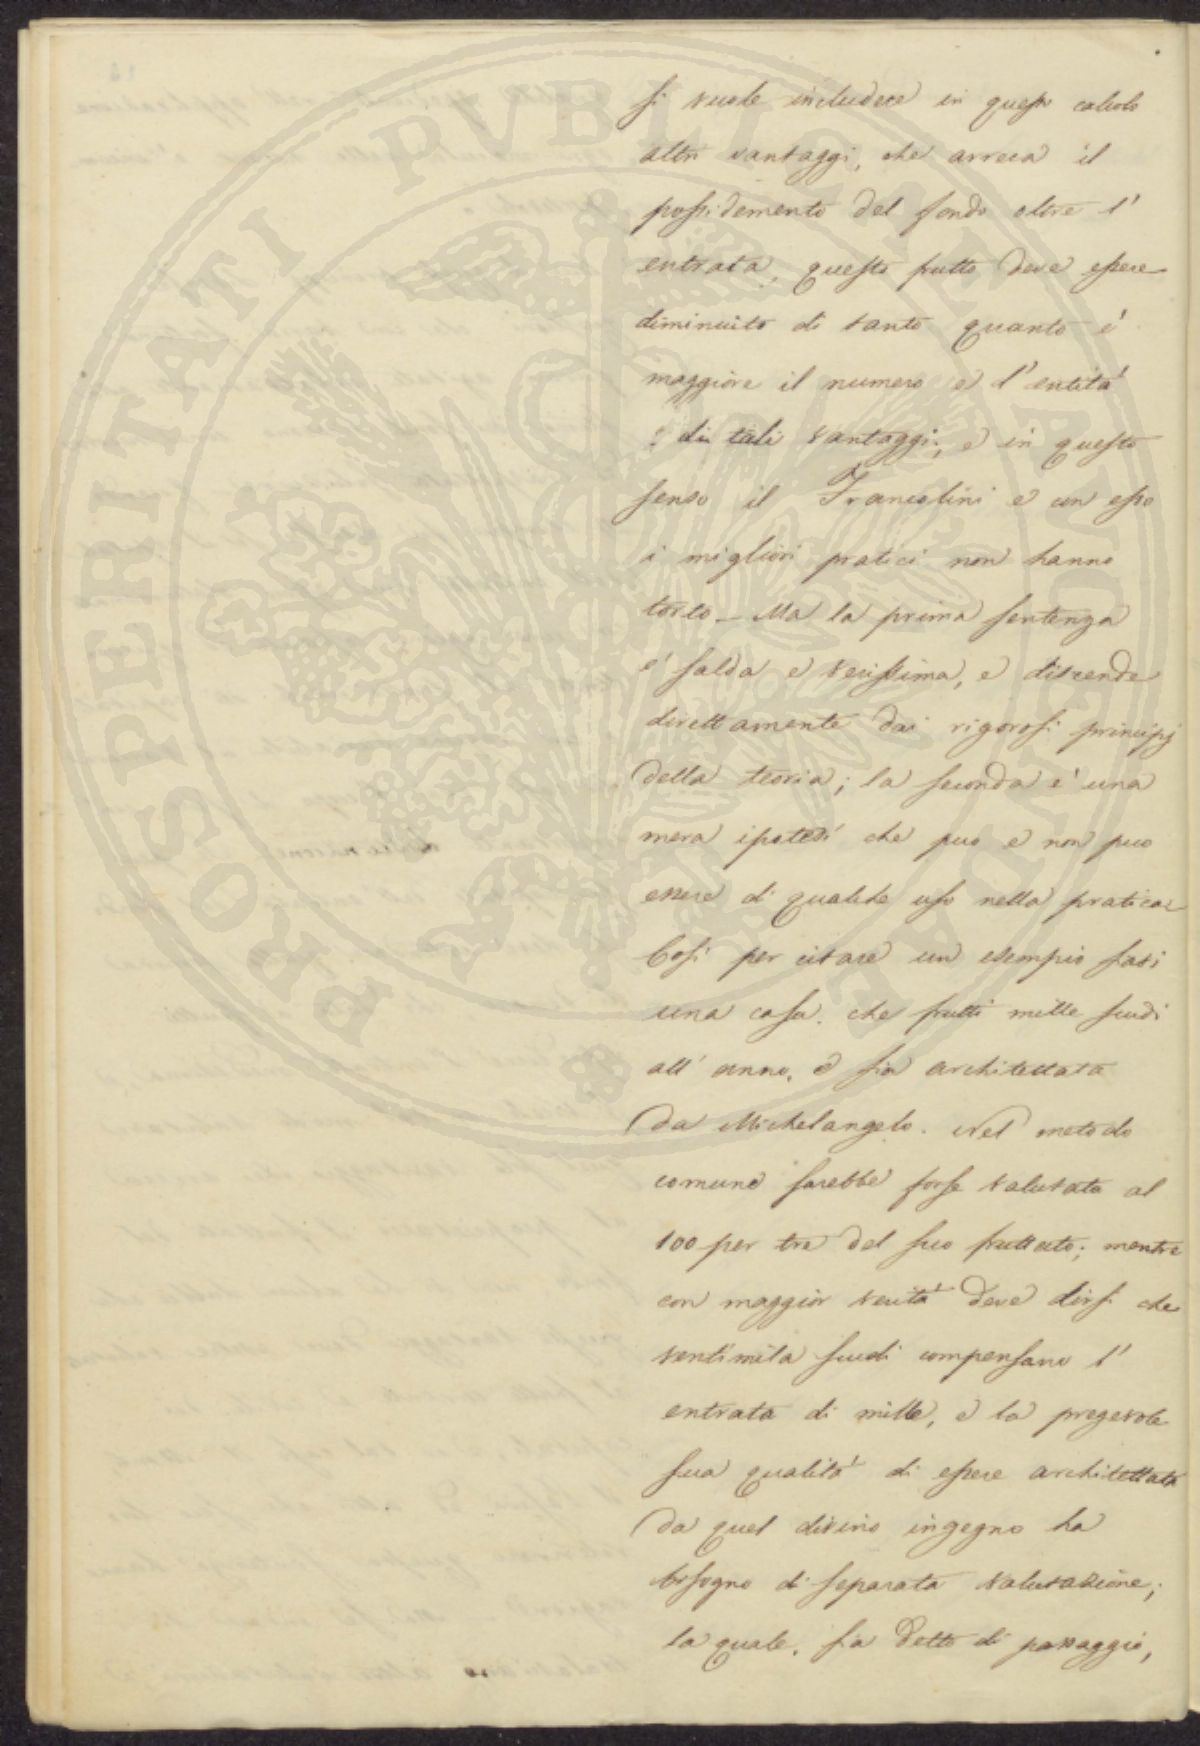 si vuole includere in questo calcolo
altri vantaggi, che arreca il
possidemento del fondo oltre l'
entrata, questo frutto deve essere
diminuito di tanto quanto é
maggiore il numero e l'entità
di tali vantaggi; e in questo
senso il Francolini e con esso
i migliori pratici non hanno
torto. Ma la prima sentenza
e' salda e verissima, e discende
direttamente dai rigorosi principj
della teoria; la seconda e' una
mera ipotesi che puo e non puo
essere di qualche uso nella pratica.
Cosi per citare un esempio siavi
una casa che frutti mille scudi
all' anno, e sia architettata
da Michelangelo. Nel metodo
comune sarebbe forse valutata al
100 per tre del suo fruttato; mentre
con maggior verità deve dirsi che
ventimila scudi compensano l'
entrata di mille, e la pregevole
sua qualità di essere architettata
da quel divino ingegno ha
bisogno di separata valutazione;
la quale, sia detto di passaggio,
PROSPERITATI PVBLICAE AVGENDAE